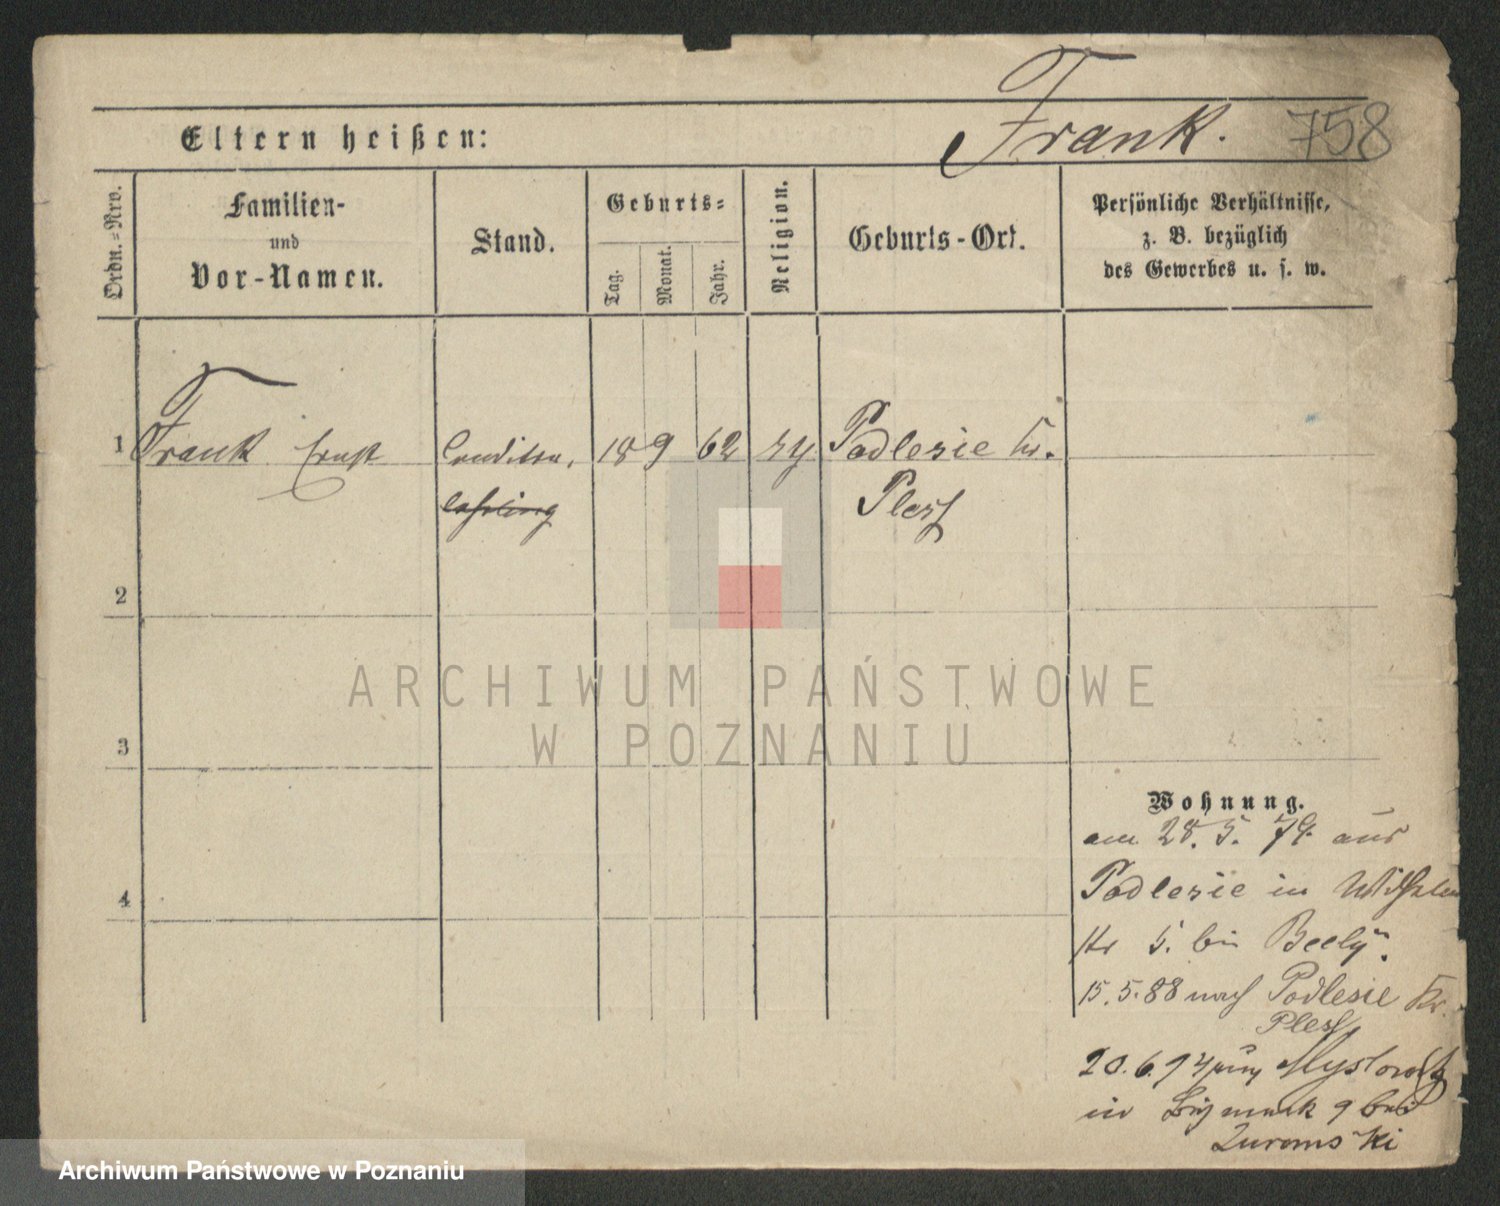 Frank. 758
Eltern heißen:
Ordn.-Nro.
Familien-
und
Vor-Namen.
Stand.
Geburts-
Tag.
Monat.
Jahr.
Religion.
Geburts-Ort.
Persönliche Verhältnisse,
z. B. bezüglich
des Gewerbes u. s. w.
1 Frank Ernst Conditor. 18 9 62 Podlesie Kr.
lehrling Pless
2
3
4
ARCHIWUM PAŃSTWOWE
W POZNANIU
Wohnung.
am 28. 5. 79. aus
Podlesie in Wilhelm
Str 5. bei Beely.
15. 5. 88 nach Podlesie Kr.
Pless
20. 6. 94 Myslowitz
in Bismark 9 bei
Zuromski
Archiwum Państwowe w Poznaniu